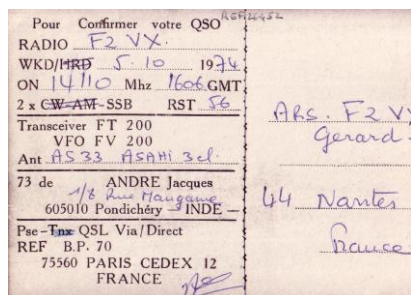 Pour Confirmer votre QSO
REF26452
RADIO F2 VX.
WKD/HRD 5.10 1974
ON 14110 Mhz 1606 GMT
2 x CW-AM-SSB RST 56
Transceiver FT 200
VFO FV 200
Ant AS33 ASAHI 3el.
73 de ANDRE Jacques
1/8 Rue Mangame
605010 Pondichéry - INDE -
Pse-Tnx QSL Via/Direct
REF B.P. 70
75560 PARIS CEDEX 12
FRANCE
ARS. F2 VX
Gerard.
44 Nantes
France